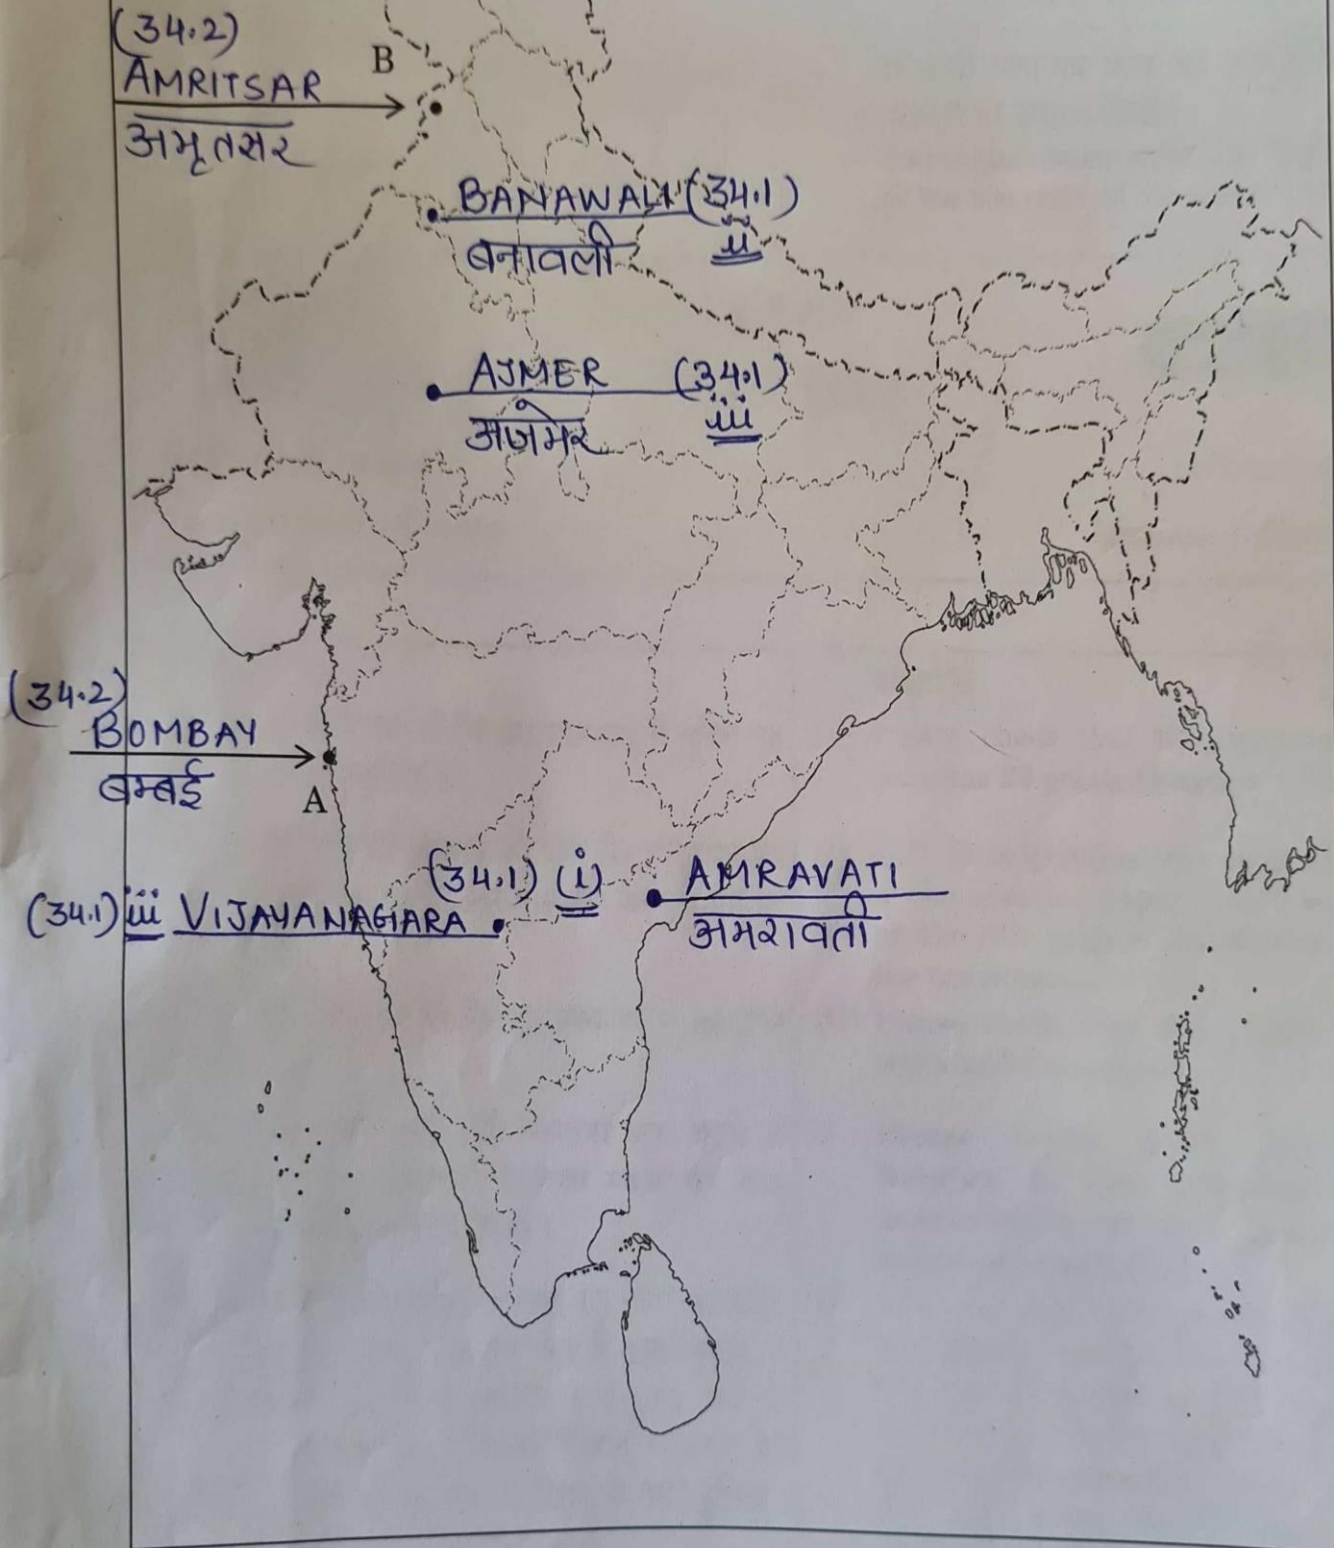 (34.2)
AMRITSAR
अमृतसर
B
BANAWALI (34.1)
बनावली ii
AJMER (34.1)
अजमेर iii
(34.2)
BOMBAY
बम्बई
A
(34.1) (i) AMRAVATI
अमरावती
(34.1) iii VIJAYANAGARA